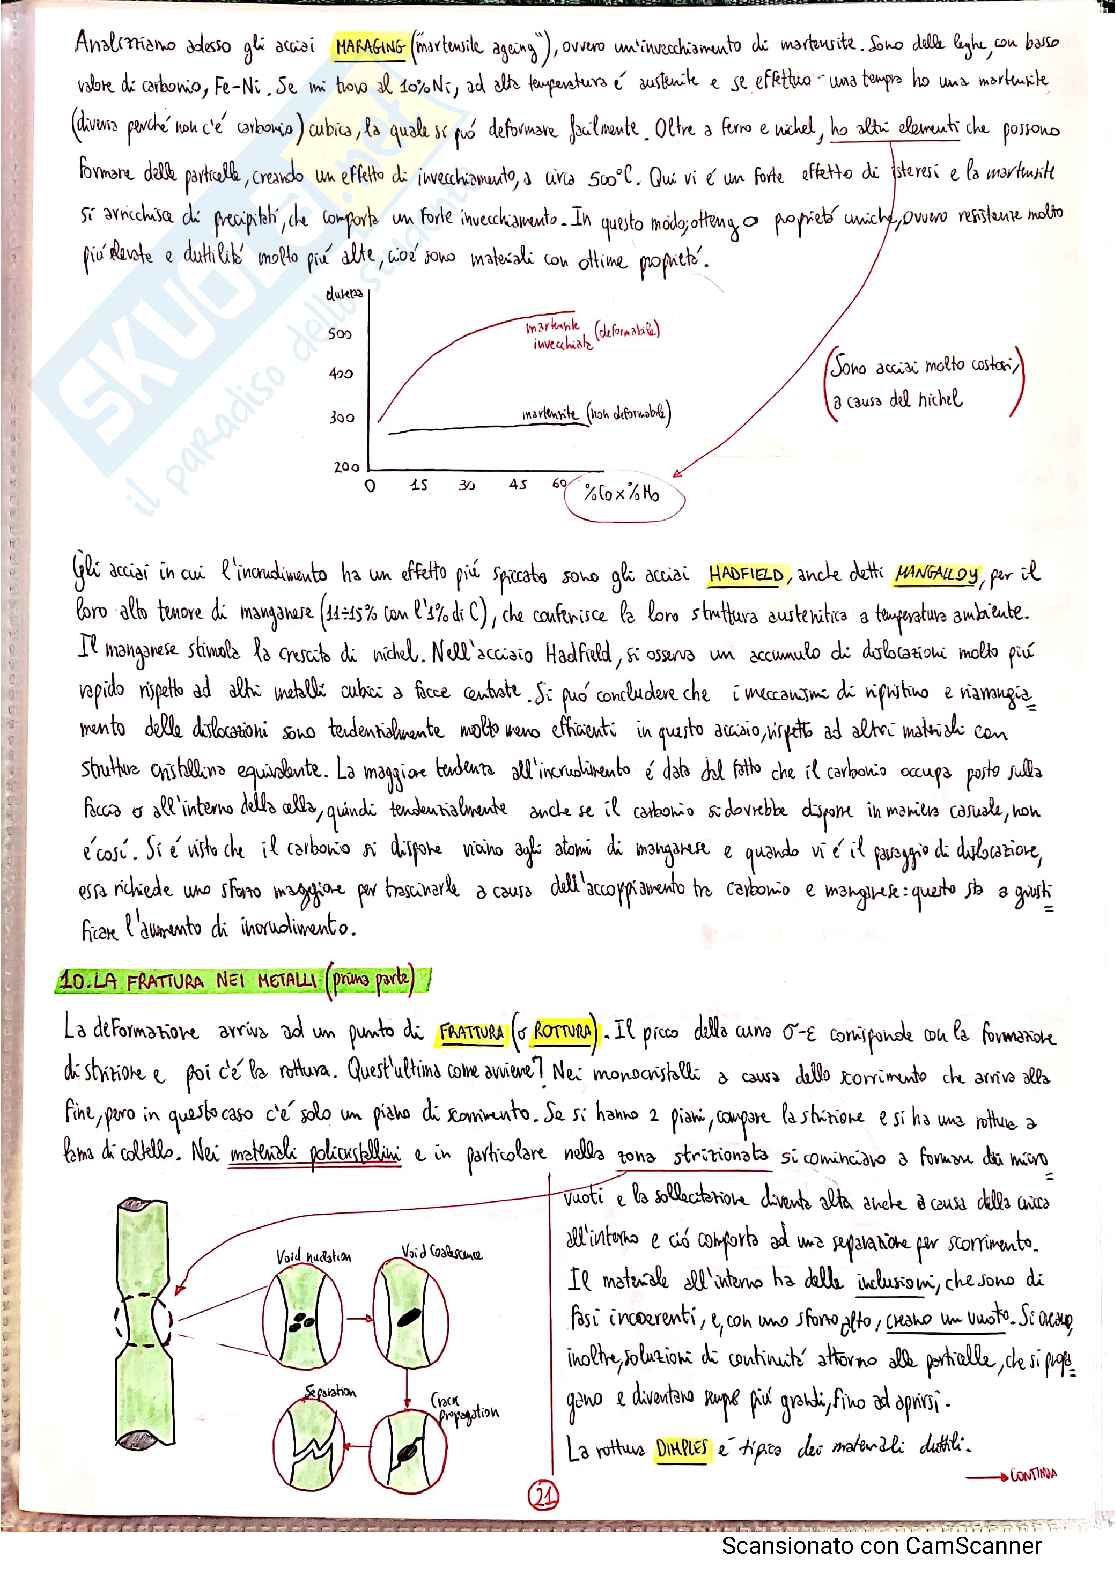 Analizziamo adesso gli acciai MARAGING ("martensite ageing"), ovvero un'invecchiamento di martensite. Sono delle leghe, con basso
valore di carbonio, Fe-Ni. Se mi trovo al 10% Ni, ad alta temperatura é austenite e se effettuo una tempra ho una martensite
(diversa perché non c'é carbonio) cubica, la quale si può deformare facilmente. Oltre a ferro e nichel, ho altri elementi che possono
formare delle particelle, creando un effetto di invecchiamento, a circa 500°C. Qui vi é un forte effetto di isteresi e la martensite
si arricchisce di precipitati, che comporta un forte invecchiamento. In questo modo, ottengo proprietà uniche, ovvero resistenze molto
più elevate e duttilità molto più alte, cioé sono materiali con ottime proprietà.
durezza
500
400
300
200
0 15 30 45 60 %Co x %Mo
martensite invecchiata (deformabile)
martensite (non deformabile)
(Sono acciai molto costosi,
a causa del nichel)
Gli acciai in cui l'incrudimento ha un effetto più spiccato sono gli acciai HADFIELD, anche detti MANGALLOY, per il
loro alto tenore di manganese (11÷15% con l'1% di C), che conferisce la loro struttura austenitica a temperatura ambiente.
Il manganese stimola la crescita di nichel. Nell'acciaio Hadfield, si osserva un accumulo di dislocazioni molto più
rapido rispetto ad altri metalli cubici a facce centrate. Si può concludere che i meccanismi di ripristino e riarrangia=
mento delle dislocazioni sono tendenzialmente molto meno efficienti in questo acciaio, rispetto ad altri materiali con
struttura cristallina equivalente. La maggiore tendenza all'incrudimento é data dal fatto che il carbonio occupa posto sulla
faccia o all'interno della cella, quindi tendenzialmente anche se il carbonio si dovrebbe disporre in maniera casuale, non
é così. Si é visto che il carbonio si dispone vicino agli atomi di manganese e quando vi é il passaggio di dislocazione,
essa richiede uno sforzo maggiore per trascinarle a causa dell'accoppiamento tra carbonio e manganese: questo sta a giusti=
ficare l'aumento di incrudimento.
10. LA FRATTURA NEI METALLI (prima parte)
La deformazione arriva ad un punto di FRATTURA (o ROTTURA). Il picco della curva σ-ε corrisponde con la formazione
di strizione e poi c'é la rottura. Quest'ultima come avviene? Nei monocristalli a causa dello scorrimento che arriva alla
fine, però in questo caso c'é solo un piano di scorrimento. Se si hanno 2 piani, compare la strizione e si ha una rottura a
lama di coltello. Nei materiali policristallini e in particolare nella zona strizionata si cominciano a formare dei micro=
vuoti e la sollecitazione diventa alta anche a causa della cricca
all'interno e ciò comporta ad una separazione per scorrimento.
Il materiale all'interno ha delle inclusioni, che sono di
fasi incoerenti, e, con uno sforzo alto, creano un vuoto. Si creano,
inoltre, soluzioni di continuità attorno alle particelle, che si propa=
gano e diventano sempre più grandi, fino ad aprirsi.
La rottura DIMPLES é tipica dei materiali duttili.
Void nucleation
Void Coalescence
Crack Propagation
Separation
CONTINUA
21
SKUOLA.net
il paradiso dello studente
Scansionato con CamScanner